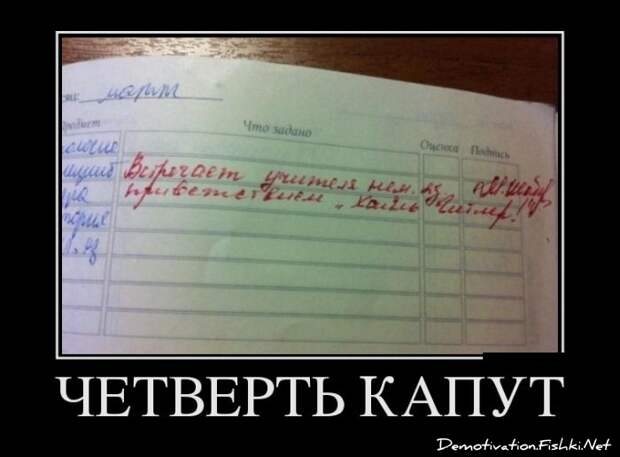 март
Предмет Что задано Оценка Подпись
Встречает учителя нем. яз
приветствием „Хайль Гитлер!"
ЧЕТВЕРТЬ КАПУТ
Demotivation.Fishki.Net